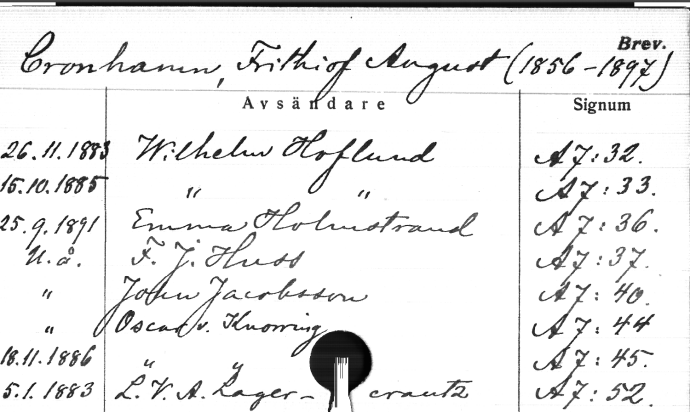 Brev.
Cronhamn, Frithiof August (1856-1897)
Avsändare Signum
26.11.1883 Wilhelm Hoflund A7:32.
15.10.1885 " " A7:33.
25.9.1891 Emma Holmstrand A7:36.
U.å. F. J. Huss A7:37.
" John Jacobsson A7:40.
" Oscar v. Knorring A7:44
18.11.1886 " " A7:45.
5.1.1883 L. V. A. Lager- crantz A7:52.